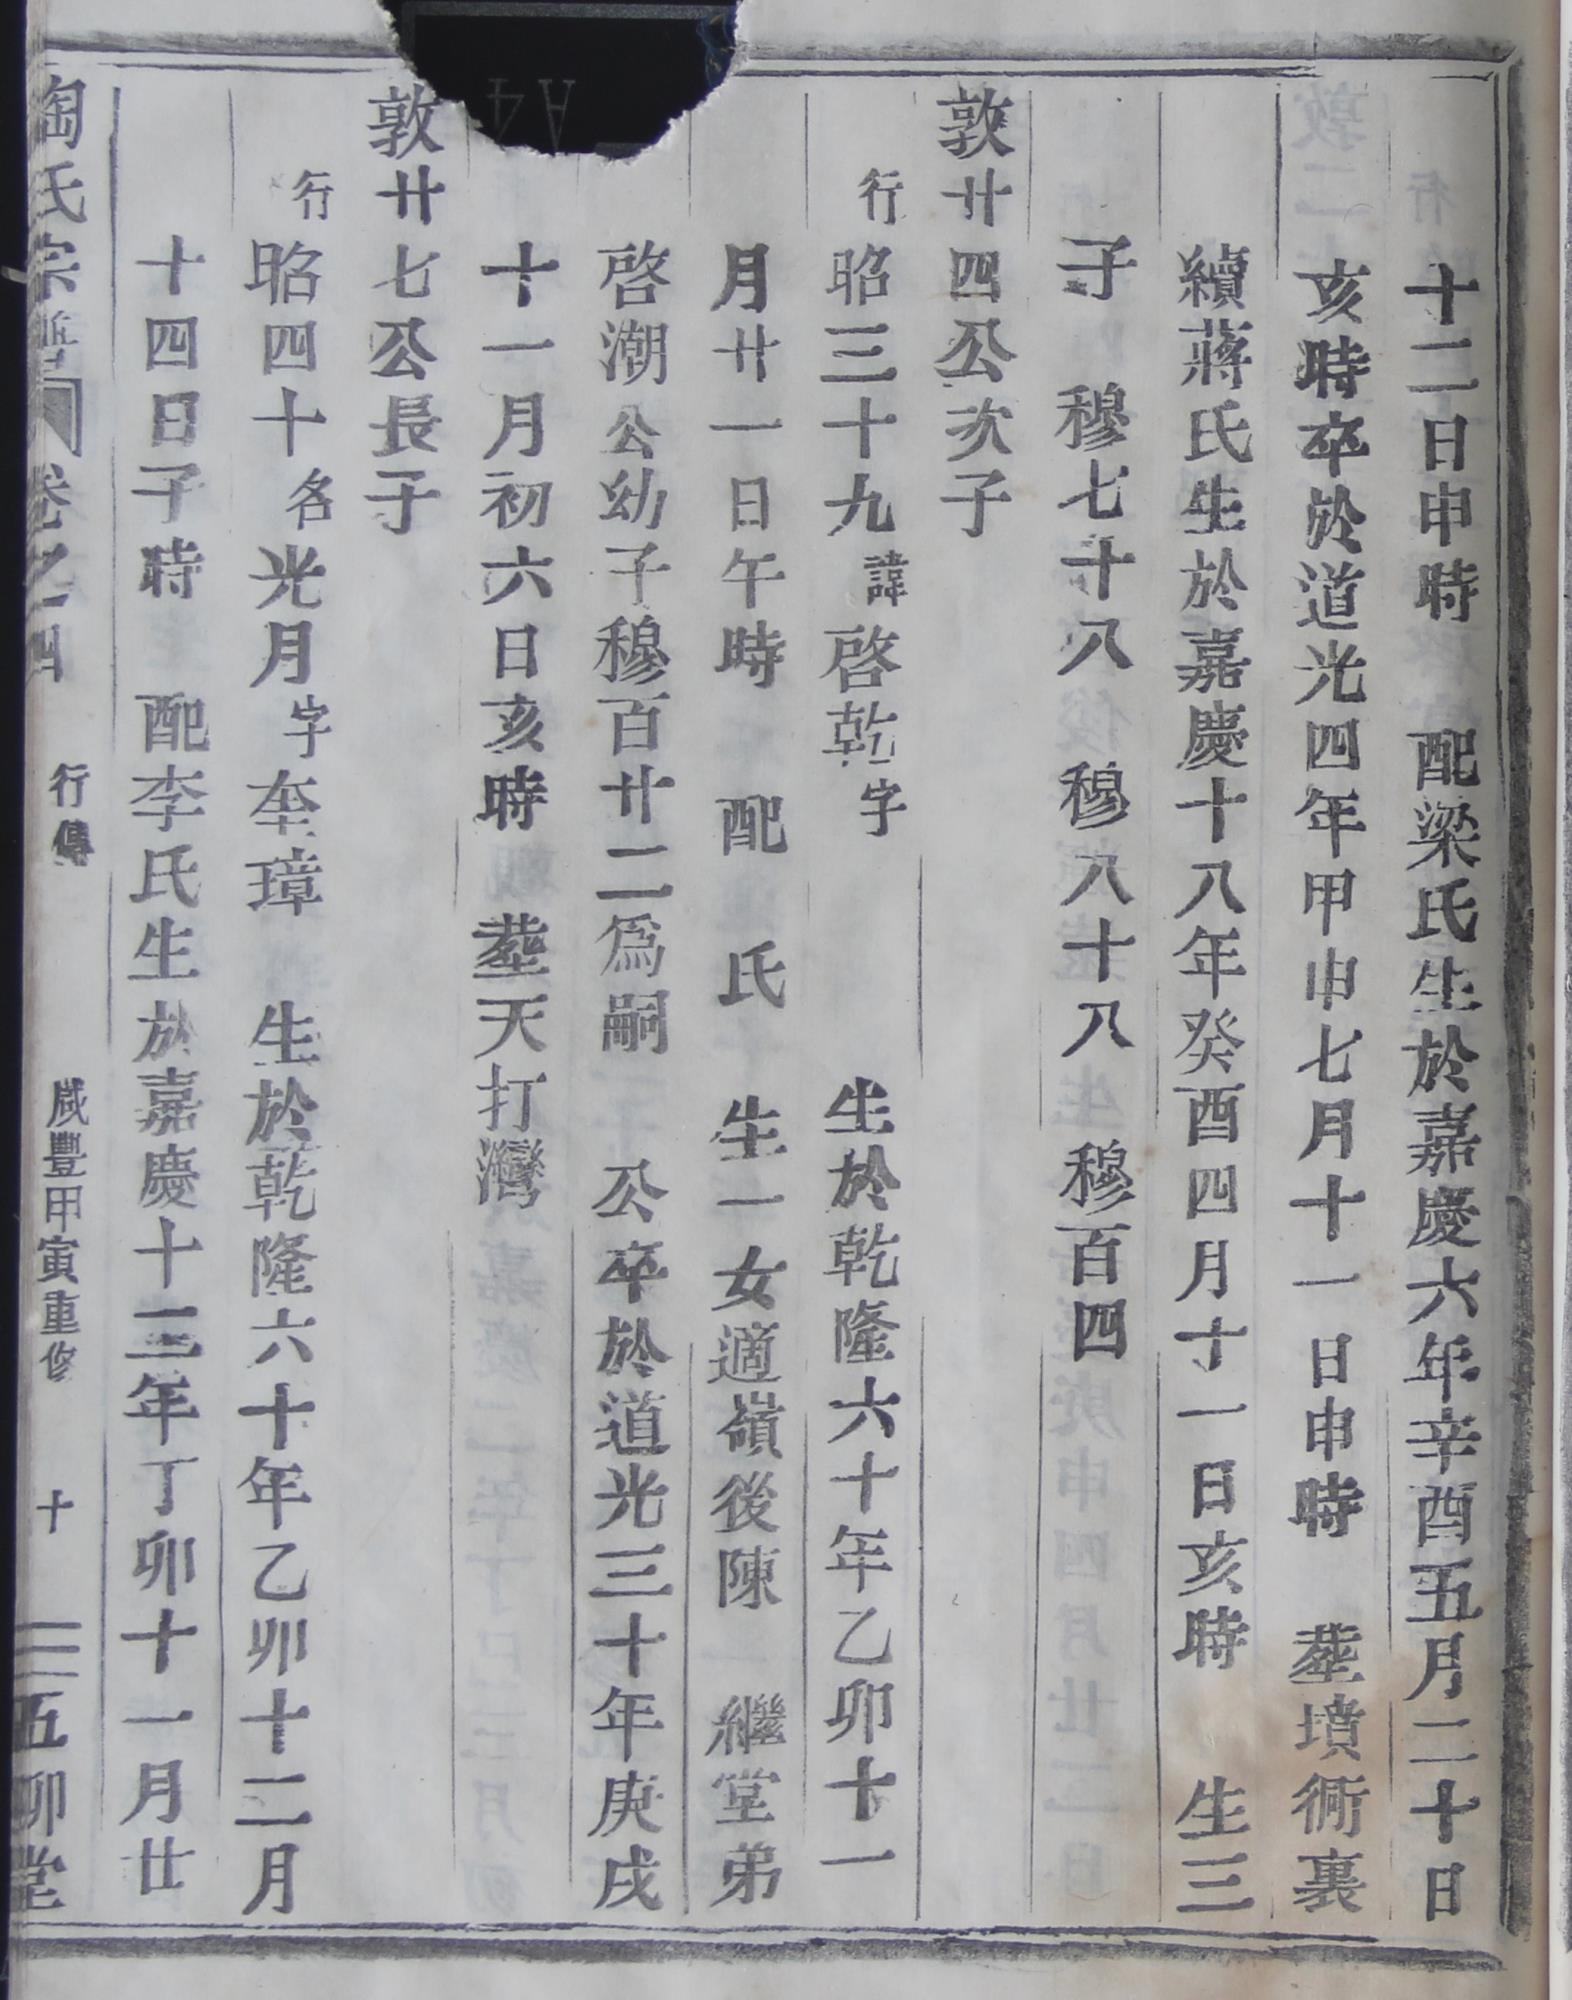 十二日申時　配梁氏生於嘉慶六年辛酉五月二十日
亥時卒於道光四年甲申七月十一日申時　塟墳衕裏
續蔣氏生於嘉慶十八年癸酉四月十一日亥時　生三
子　穆七十八　穆八十八　穆百四
敦廿四公次子
行昭三十九諱啓乾字　　生於乾隆六十年乙卯十一
月廿一日午時　配　氏　生一女適嶺後陳　繼堂弟
啓潮公幼子穆百廿二爲嗣　公卒於道光三十年庚戌
十一月初六日亥時　塟天打灣
敦廿七公長子
行昭四十名光月字奎璋　生於乾隆六十年乙卯十二月
十四日子時　配李氏生於嘉慶十二年丁卯十一月廿
陶氏宗譜　卷之四　行傳　咸豐甲寅重修　十　五柳堂